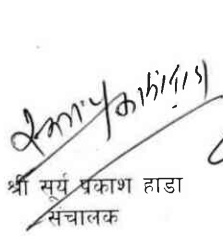 श्री सूर्य प्रकाश हाडा
संचालक